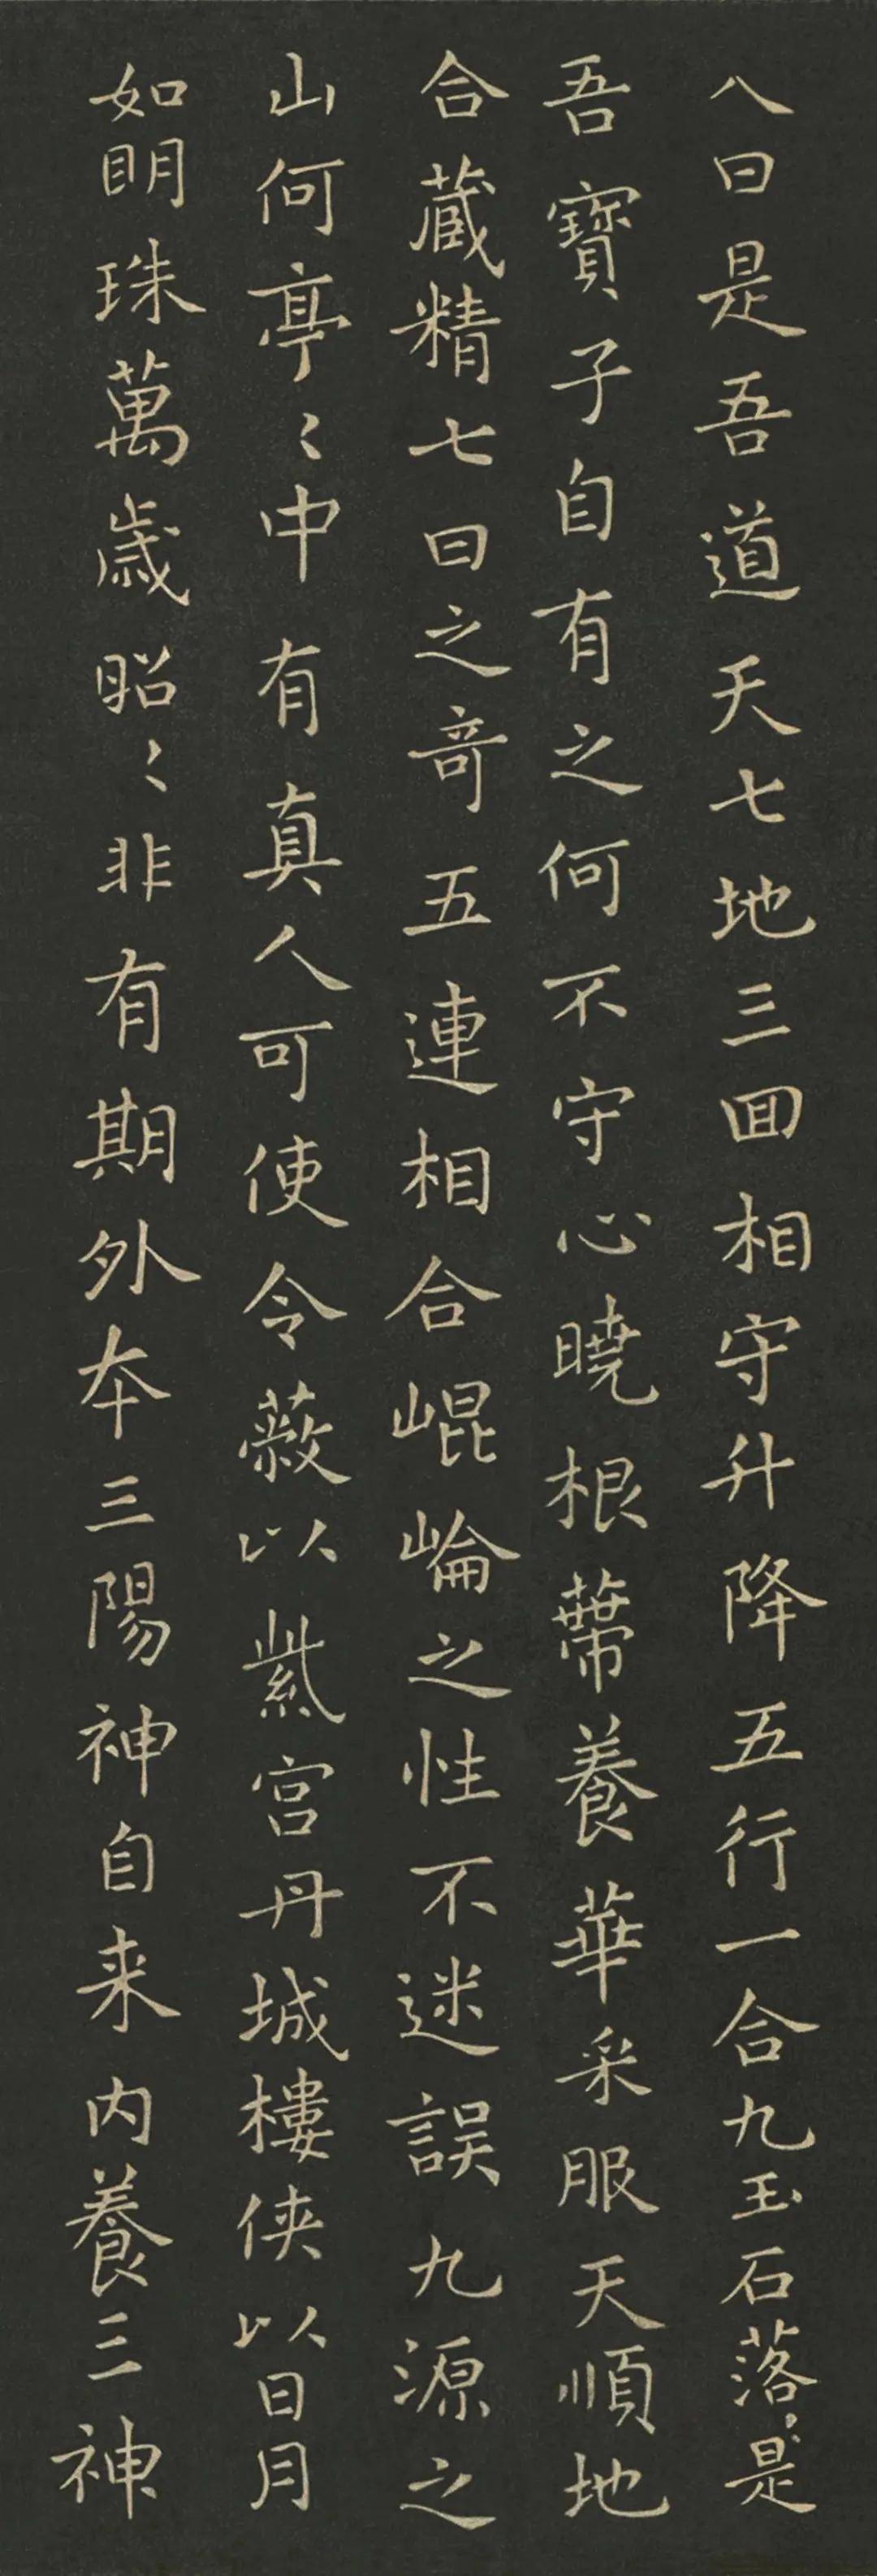 八曰是吾道天七地三回相守升降五行一合九玉石落〻是
吾寶子自有之何不守心曉根蔕養華采服天順地
合藏精七日之奇五連相合崐崘之性不迷誤九源之
山何亭〻中有真人可使令蔽以紫宮丹城樓俠以日月
如明珠萬歲昭〻非有期外本三陽神自来内養三神